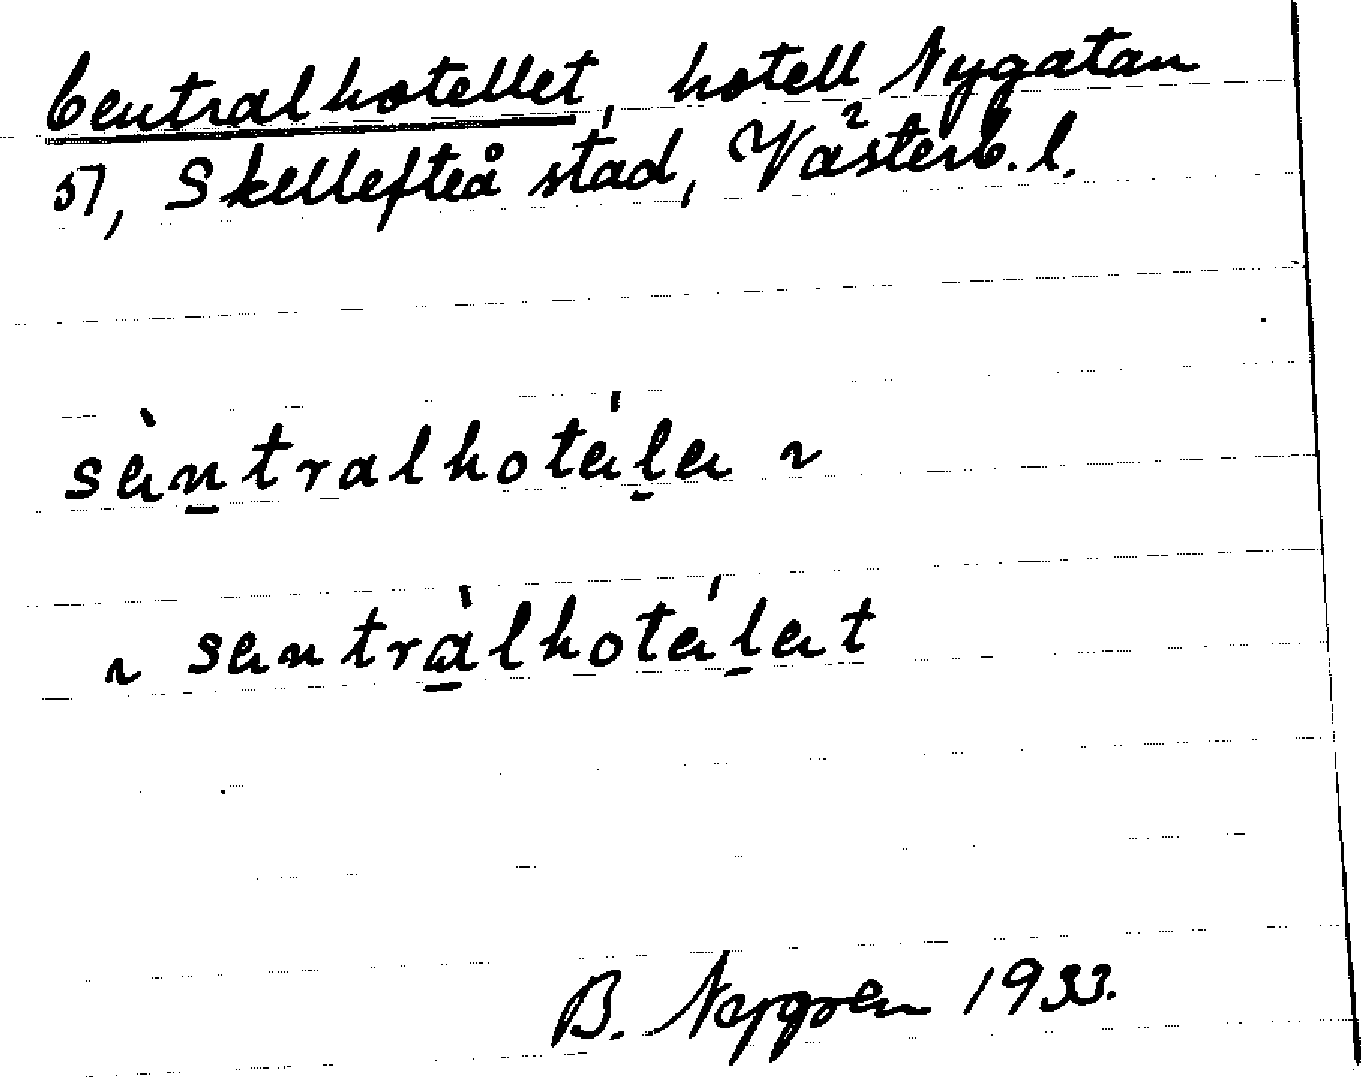 Centralhotellet, hotell Nygatan
51, Skellefteå stad, Västerb. l.
sèn̲tralhoté̀l̲e ~
~ sentrà̲lhotél̲et
B. Nygren 1933.